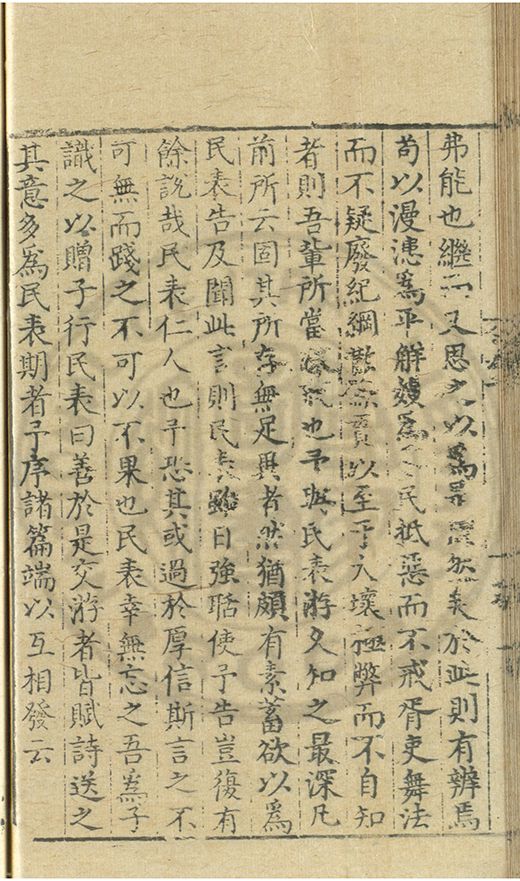 弗能也繼而又思之以為於此則有辨焉
苟以漫漶為平解嫚為民抵惡而不戒胥吏舞法
而不疑廢紀綱以至于大壞極弊而不自知
者則吾輩所當也予與民表游久知之最深凡
前所云固其所存無足異者然猶頗有素蓄欲以為
民表告及聞此言則民表雖日強聒使予告豈復有
餘說哉民表仁人也予恐其或過於厚信斯言之不
可無而踐之不可以不果也民表幸無忘之吾為子
識之以贈子行民表曰善於是交游者皆賦詩送之
其意多為民表期者予序諸篇端以互相發云